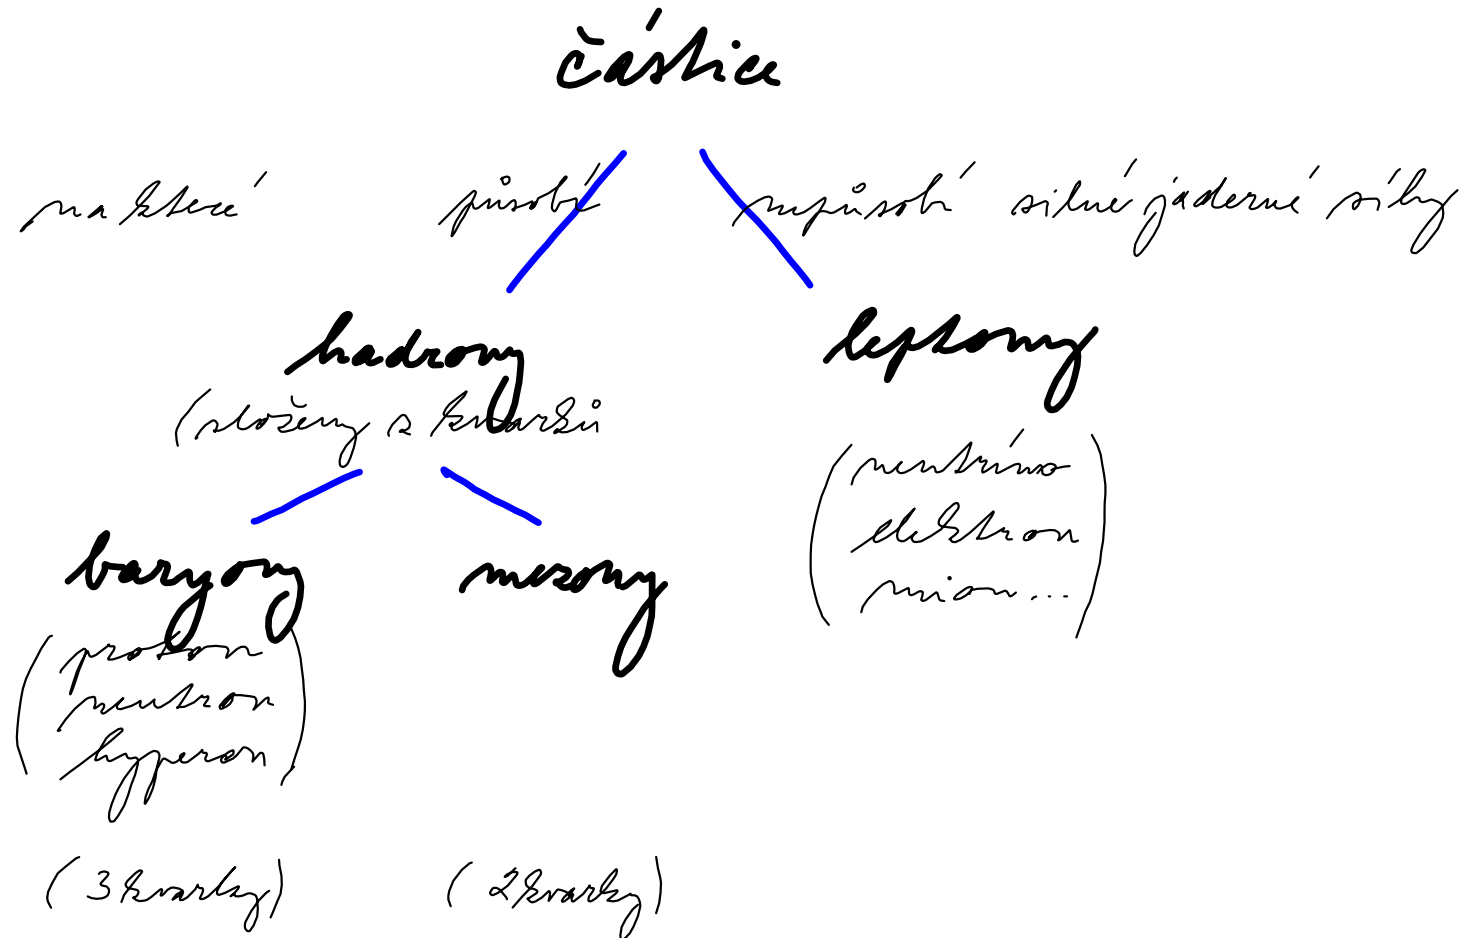 částice
na které působí nepůsobí silné jaderné síly
hadrony leptony
(složeny z kvarků
(neutríno
elektron
mion...)
baryony mezony
(proton
neutron
hyperon)
(3 kvarky) (2 kvarky)